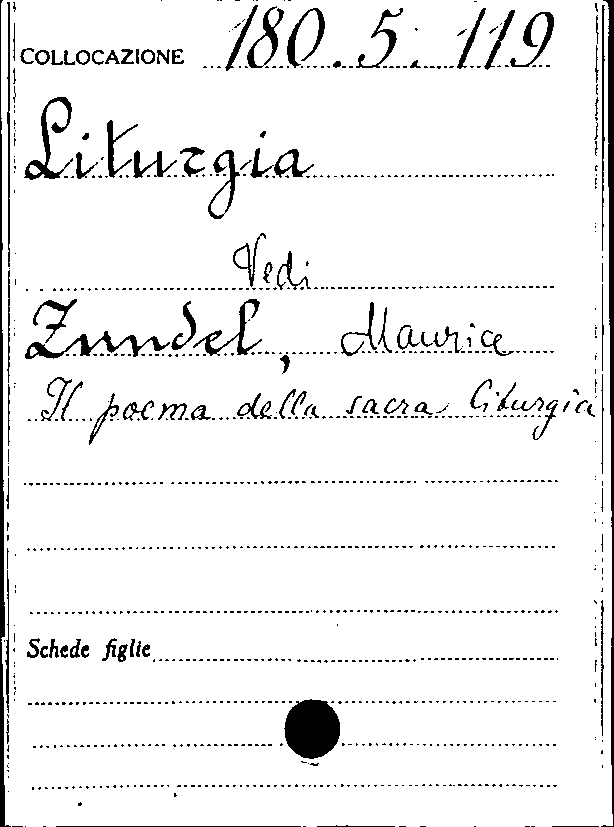 COLLOCAZIONE 180.5.119
Liturgia
Vedi
Zundel, Maurice
Il poema della sacra liturgia
Schede figlie